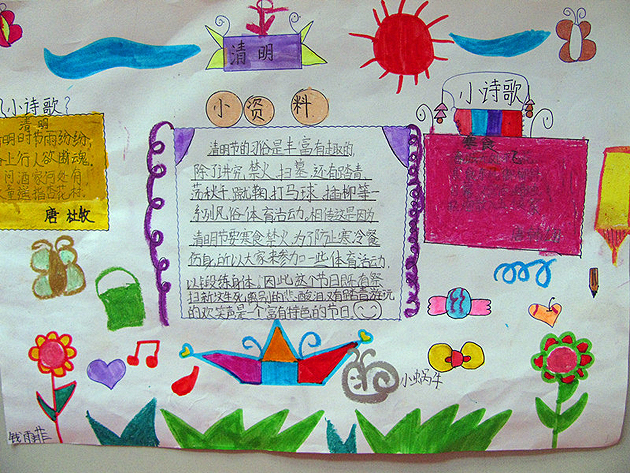 清明
小资料
小诗歌
小诗歌?
清明
明时节雨纷纷,
上行人欲断魂,
问酒家何处有
童遥指杏花村。
唐 杜牧
清明节的习俗是丰富有趣的,
除了讲究禁火、扫墓,还有踏青、
荡秋千、蹴鞠、打马球、插柳等一
系列风俗体育活动。相传这是因为
清明节要寒食禁火,为了防止寒冷餐
伤身,所以大家来参加一些体育活动,
以锻练身体。因此,这个节日既有祭
扫新坟生死离别的悲酸泪,又有踏青游玩
的欢笑声,是一个富有特色的节日。
寒食
小蜗牛